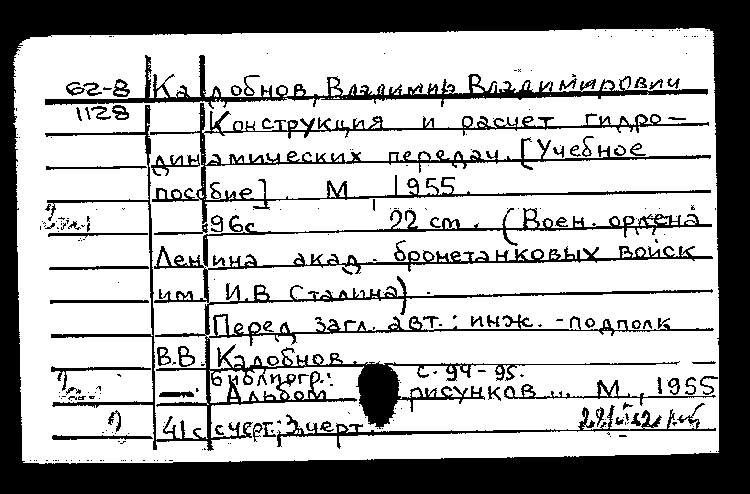 62-8 Кадобнов, Владимир Владимирович
1128
Конструкция и расчет гидро-
динамических передач. [Учебное
пособие]. М, 1955.
96с 22 cm. (Воен. ордена
Ленина акад. бронетанковых войск
им. И.В. Сталина).
Перед загл. авт.: инж.-подполк
В.В. Кадобнов.
Библиогр.: с. 94-95.
— Альбом рисунков ... М., 1955
41 с счерт; 3 черт.